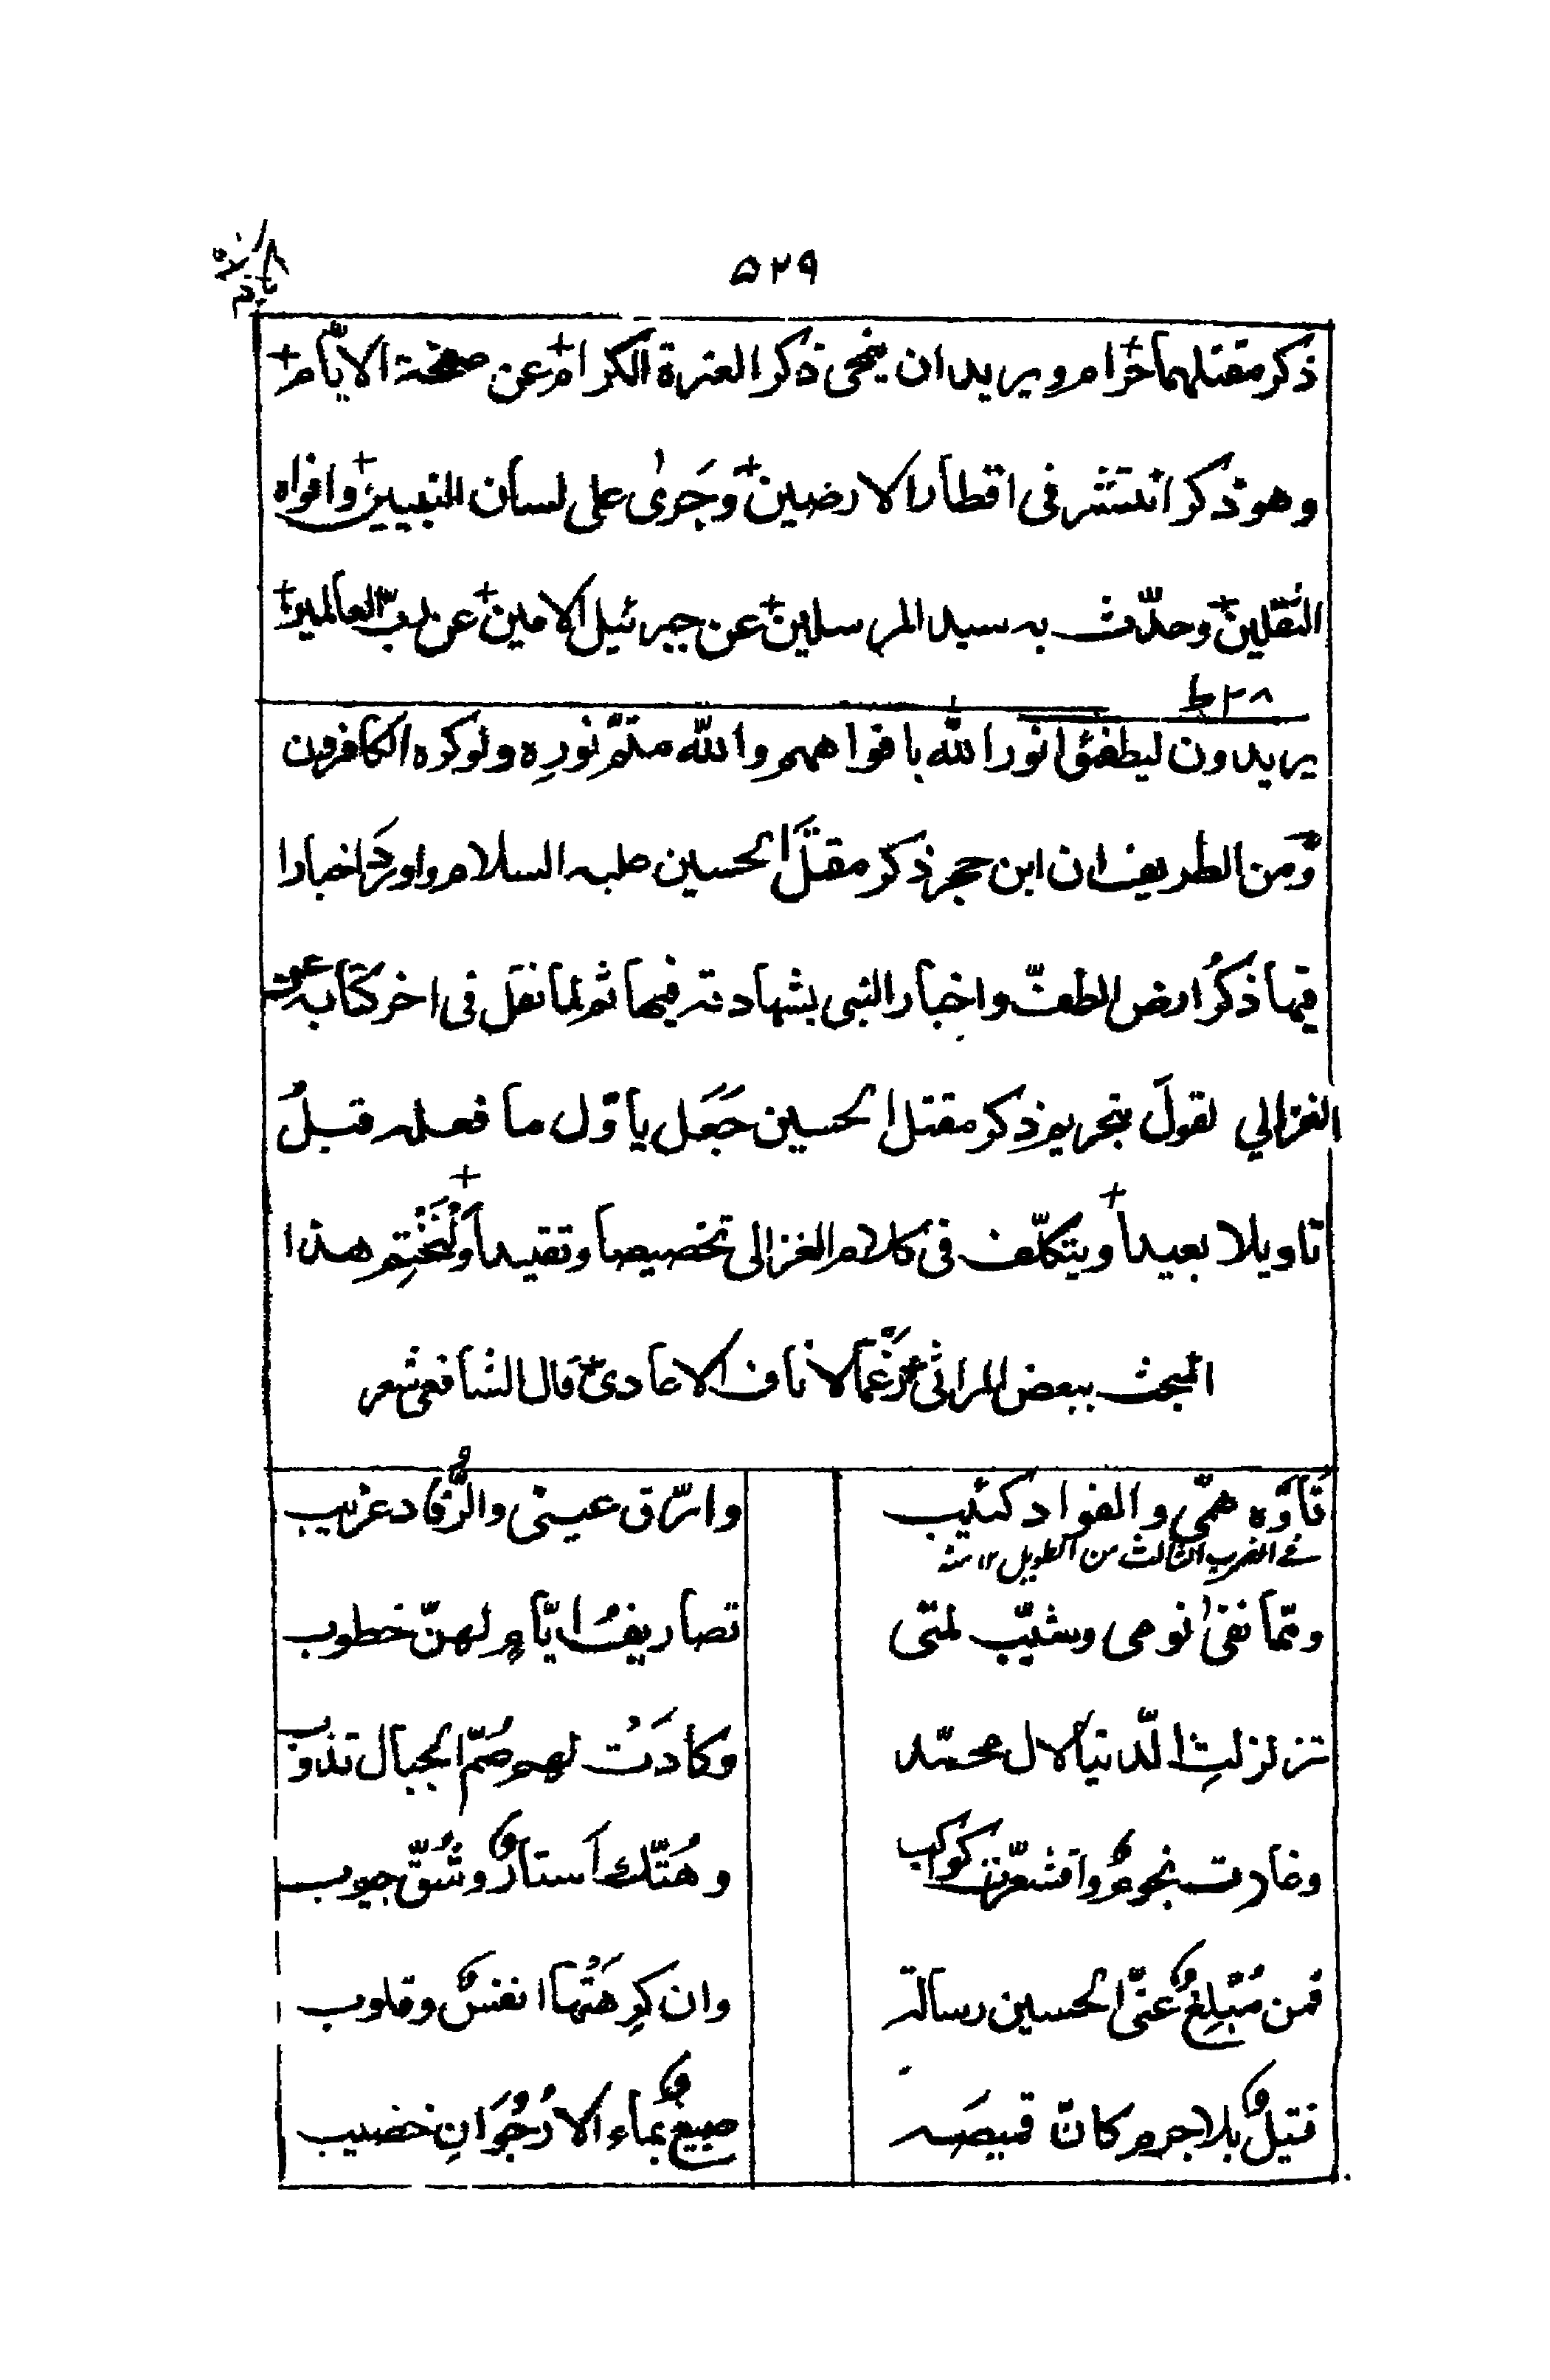 ۵۲۹
ذكر مقتلهما حرام ويريد ان ينمحى ذكر العترة الكرام عن صفحة الايّام
وهو ذكر انتشر فى اقطار الارضين وجَرىٰ على لسان النبيين وافواه
الثقلين وحدّث به سيد المرسلين عن جبرئيل الامين عن ربّ العالمين
٢٨
يريدون ليطفئوا نور الله بافواههم والله متمّ نورِه ولو كره الكافرون
ومن الطريف ان ابن حجر ذكر مقتلَ الحسين عليه السلام واورَدَ اخبارا
فيها ذكرُ ارض الطفّ واخبار النبى بشهادته فيها ثم لما نقل فى اخر كتابه عن
الغزالي لقولَ بتحريم ذكر مقتل الحسين جَعَل يأوّل ما فعله قبلُ
تاويلا بعيداً ويتكلّف فى كلام الغزالى تخصيصا وتقييداً ولنَختِم هذا
المبحث ببعض المراثى رَغما لاناف الاعادى قال الشافعى شعر
تأوّه همّى والفواد كئيب
وارّق عينى والرُّقاد غريب
فى الضرب الثالث من الطويل ١٢ منه
وممّا نفىٰ نومى وشيّب لمتى
تصاريفُ ايّامٍ لهنّ خطوب
تزلزلتِ الدّنيا لال محمّد
وكادَتْ لهم صُمّ الجبال تذوب
وغارت نجومٌ واقشعرّت كواكب
وهُتّك اَستارٌ وشُقّ جيوب
فمن مُبْلِغٌ عنّى الحسين رسالة
وان كرِهَتْها انفسٌ وقلوب
قتيلٌ بلا جرم كانّ قميصَه
صبيغٌ بماءِ الارُجُوَانِ خضيب